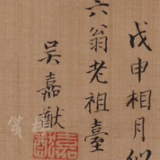 戊申相月似
六翁老祖臺
吳嘉猷